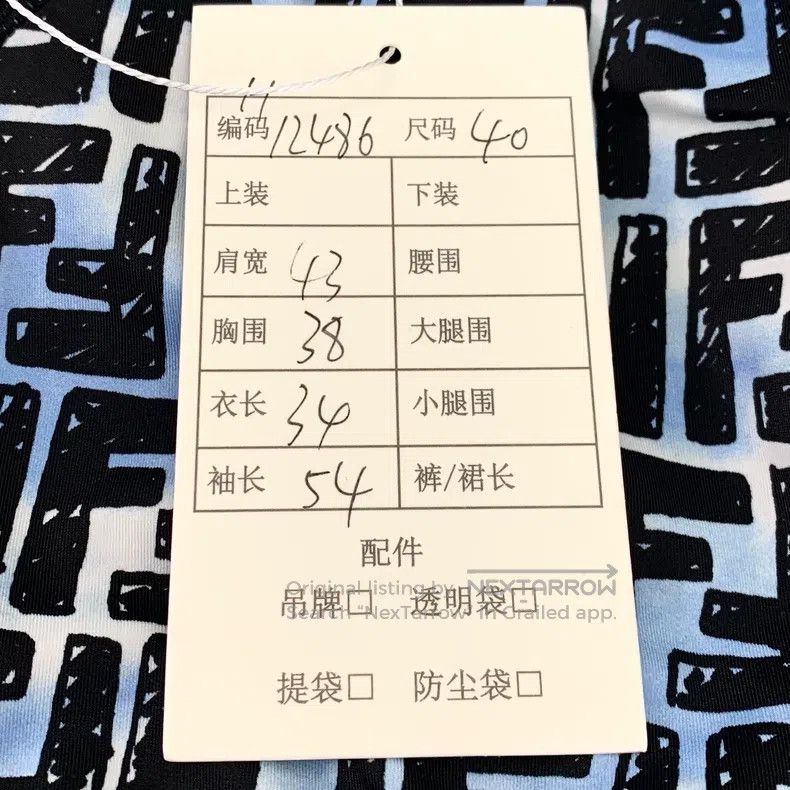 编码 12486 尺码 40
上装 下装
肩宽 43 腰围
胸围 38 大腿围
衣长 34 小腿围
袖长 54 裤/裙长
配件
Original listing by NEXTARROW
吊牌□ 透明袋□
Search "NexTarrow" in Grailed app.
提袋□ 防尘袋□